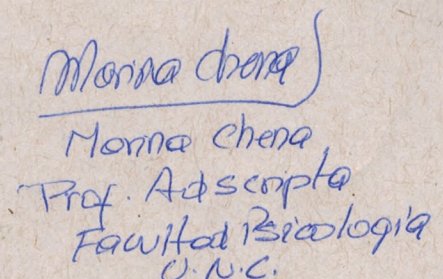 Marina Chena
Marina Chena
Prof. Adscripta
Facultad Psicología
U.N.C.